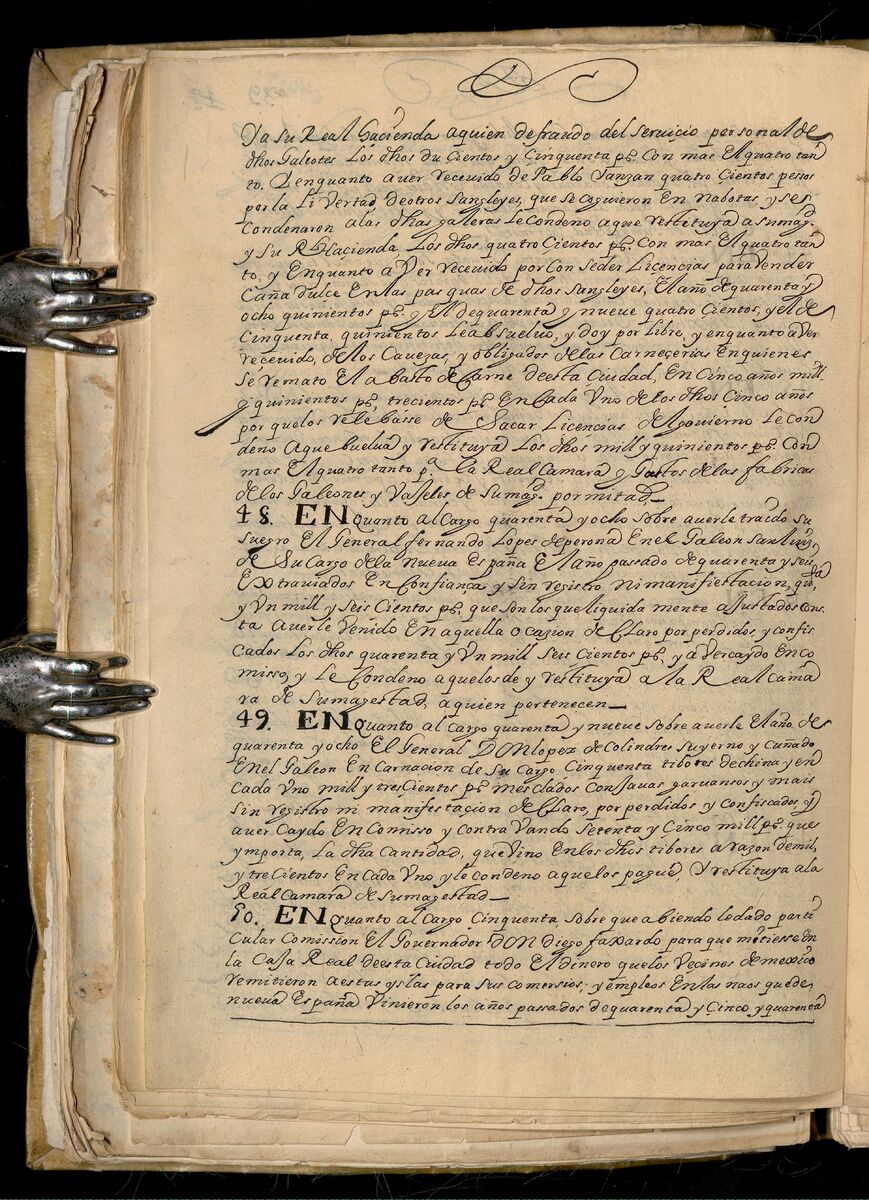 Ya su Real Hacienda aquien defraudo del servicio personal de
dhos Galeotes Los dhos du Cientos y Cinquenta ps. Con mas El quatro tan
to. Y enquanto a ver recevido de Pablo Sanzan quatro Cientos pesos
por la Livertad de otros Sangleyes, que se cogieron En nabotas, y se
Condenaron a las dhas galleras Le Condeno a que restituya a su magd.
y Su Rl. Hacienda Los dhos quatro Cientos ps. Con mas El quatro tan
to, y Enquanto á Ver recevido por Con Seder Licencias para vender
Caña dulce En las pasquas de dhos Sangleyes, El año de quarenta y
ocho quinientos ps. y El de quarenta y nueve quatro Cientos, y el de
Cinquenta, quinientos Le absuelvo, y doy por Libre, y enquanto a Ver
recevido, de los Cavezas, y obligados de las Carneçerias En quienes
Se remato El abasto de Carne de esta Ciudad, En Cinco años mill
y quinientos ps, trecientos ps En Cada Vno de los dhos Cinco años
por que los relebasse de Sacar Licencias del govierno Le con
deno A que buelva y restituya Los dhos mill y quinientos ps. Con
mas El quatro tanto pa. la Real Camara y Gastos de las fabricas
de los Galeones y Vasseles de Su magd. por mitad
48. ENquanto al Cargo quarenta y ocho Sobre averle traido su
Suegro El General fernando Lopes de perona En el Galeon San Luis,
de Su Cargo de la nueva España El año passado de quarenta y seis
Extraviados En Confiança, y Sin registro, ni manifiestacion, quarenta
y Vn mill y seis Cientos ps. que son los que liquida mente ajustados Cons
ta Averle Venido En aquella ocazion declaro por perdidos, y confis
cados Los dhos quarenta y Vn mill Seis Cientos ps, y aver caydo En co
misso, y Le Condeno a que los de y restituya a la Real Cama
ra de Su magestad, a quien pertenecen
49. ENquanto al Cargo quarenta y nueve Sobre averle El año de
quarenta y ocho El General DON lopez de Colindres Su yerno y Cuñado
En el Galeon En Carnacion de Su Cargo Cinquenta tibores de china y en
Cada Vno mill y tres Cientos ps. mesclados Con Javas garvansos y mais
Sin registro ni manifestacion declaro, por perdidos y confiscados y
aver Caydo En Comisso y Contra Vando Setenta y Cinco mill ps. que
ymporta, La dha Cantidad, que Vino En los dhos tibores a razon de mil
y tre Cientos En Cada Vno y le condeno a que los pague, Y restituya a la
Real Camara de Su magestad
50. ENquanto al Cargo Cinquenta, Sobre que abiendo le dado parti
Cular Comission El Governador DON diego faxardo para que metiesse En
la Casa Real de esta Ciudad todo El dinero que los Vecinos de mexico
remitieron a estas yslas para Sus comersios, y empleos En las naos que de
nueva España Vinieron los años passados de quarenta y Cinco y quarenta